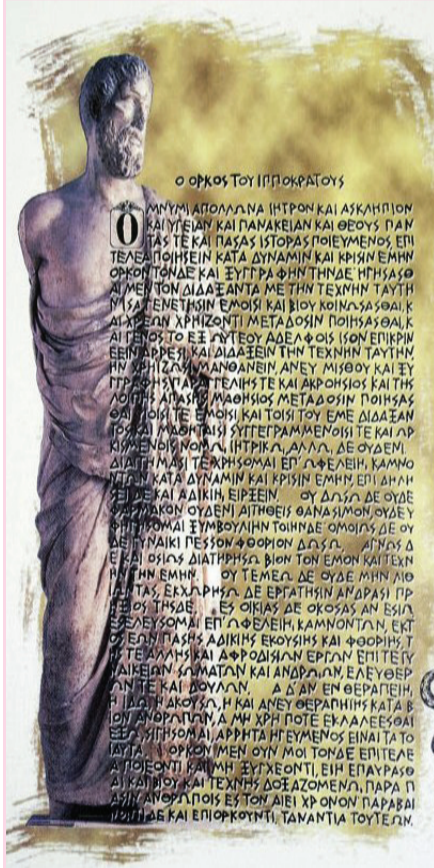 Ο ΟΡΚΟΣ ΤΟΥ ΙΠΠΟΚΡΑΤΟΥΣ
ΟΜΝΥΜΙ ΑΠΟΛΛΩΝΑ ΙΗΤΡΟΝ ΚΑΙ ΑΣΚΛΗΠΙΟΝ
ΚΑΙ ΥΓΕΙΑΝ ΚΑΙ ΠΑΝΑΚΕΙΑΝ ΚΑΙ ΘΕΟΥΣ ΠΑΝ
ΤΑΣ ΤΕ ΚΑΙ ΠΑΣΑΣ ΙΣΤΟΡΑΣ ΠΟΙΕΥΜΕΝΟΣ, ΕΠΙ
ΤΕΛΕΑ ΠΟΙΗΣΕΙΝ ΚΑΤΑ ΔΥΝΑΜΙΝ ΚΑΙ ΚΡΙΣΙΝ ΕΜΗΝ
ΟΡΚΟΝ ΤΟΝΔΕ ΚΑΙ ΞΥΓΓΡΑΦΗΝ ΤΗΝΔΕ· ΗΓΗΣΑΣΘ
ΑΙ ΜΕΝ ΤΟΝ ΔΙΔΑΞΑΝΤΑ ΜΕ ΤΗΝ ΤΕΧΝΗΝ ΤΑΥΤΗ
Ν ΙΣΑ ΓΕΝΕΤΗΣΙΝ ΕΜΟΙΣΙ ΚΑΙ ΒΙΟΥ ΚΟΙΝΩΣΑΣΘΑΙ, Κ
ΑΙ ΧΡΕΩΝ ΧΡΗΙΖΟΝΤΙ ΜΕΤΑΔΟΣΙΝ ΠΟΙΗΣΑΣΘΑΙ, Κ
ΑΙ ΓΕΝΟΣ ΤΟ ΕΞ ΩΥΤΕΟΥ ΑΔΕΛΦΟΙΣ ΙΣΟΝ ΕΠΙΚΡΙΝ
ΕΕΙΝ ΑΡΡΕΣΙ, ΚΑΙ ΔΙΔΑΞΕΙΝ ΤΗΝ ΤΕΧΝΗΝ ΤΑΥΤΗΝ,
ΗΝ ΧΡΗΙΖΩΣΙ ΜΑΝΘΑΝΕΙΝ, ΑΝΕΥ ΜΙΣΘΟΥ ΚΑΙ ΞΥ
ΓΓΡΑΦΗΣ, ΠΑΡΑΓΓΕΛΙΗΣ ΤΕ ΚΑΙ ΑΚΡΟΗΣΙΟΣ ΚΑΙ ΤΗΣ
ΛΟΙΠΗΣ ΑΠΑΣΗΣ ΜΑΘΗΣΙΟΣ ΜΕΤΑΔΟΣΙΝ ΠΟΙΗΣΑΣ
ΘΑΙ ΤΟΙΣΙ ΤΕ ΕΜΟΙΣΙ ΚΑΙ ΤΟΙΣΙ ΤΟΥ ΕΜΕ ΔΙΔΑΞΑΝ
ΤΟΣ ΚΑΙ ΜΑΘΗΤΑΙΣΙ ΣΥΓΓΕΓΡΑΜΜΕΝΟΙΣΙ ΤΕ ΚΑΙ ΩΡ
ΚΙΣΜΕΝΟΙΣ ΝΟΜΩ, ΙΗΤΡΙΚΩ, ΑΛΛΩ, ΔΕ ΟΥΔΕΝΙ.
ΔΙΑΙΤΗΜΑΣΙ ΤΕ ΧΡΗΣΟΜΑΙ ΕΠ' ΩΦΕΛΕΙΗ, ΚΑΜΝΟ
ΝΤΩΝ ΚΑΤΑ ΔΥΝΑΜΙΝ ΚΑΙ ΚΡΙΣΙΝ ΕΜΗΝ, ΕΠΙ ΔΗΛΗ
ΣΕΙ ΔΕ ΚΑΙ ΑΔΙΚΙΗ, ΕΙΡΞΕΙΝ. ΟΥ ΔΩΣΩ ΔΕ ΟΥΔΕ
ΦΑΡΜΑΚΟΝ ΟΥΔΕΝΙ ΑΙΤΗΘΕΙΣ ΘΑΝΑΣΙΜΟΝ, ΟΥΔΕ Υ
ΦΗΓΗΣΟΜΑΙ ΞΥΜΒΟΥΛΙΗΝ ΤΟΙΗΝΔΕ· ΟΜΟΙΩΣ ΔΕ ΟΥ
ΔΕ ΓΥΝΑΙΚΙ ΠΕΣΣΟΝ ΦΘΟΡΙΟΝ ΔΩΣΩ. ΑΓΝΩΣ Δ
Ε ΚΑΙ ΟΣΙΩΣ ΔΙΑΤΗΡΗΣΩ ΒΙΟΝ ΤΟΝ ΕΜΟΝ ΚΑΙ ΤΕΧΝ
ΗΝ ΤΗΝ ΕΜΗΝ. ΟΥ ΤΕΜΕΩ ΔΕ ΟΥΔΕ ΜΗΝ ΛΙΘ
ΙΩΝΤΑΣ, ΕΚΧΩΡΗΣΩ ΔΕ ΕΡΓΑΤΗΣΙΝ ΑΝΔΡΑΣΙ ΠΡ
ΗΞΙΟΣ ΤΗΣΔΕ. ΕΣ ΟΙΚΙΑΣ ΔΕ ΟΚΟΣΑΣ ΑΝ ΕΣΙΩ
ΕΣΕΛΕΥΣΟΜΑΙ ΕΠ' ΩΦΕΛΕΙΗ, ΚΑΜΝΟΝΤΩΝ, ΕΚΤ
ΟΣ ΕΩΝ ΠΑΣΗΣ ΑΔΙΚΙΗΣ ΕΚΟΥΣΙΗΣ ΚΑΙ ΦΘΟΡΙΗΣ, Τ
ΗΣ ΤΕ ΑΛΛΗΣ ΚΑΙ ΑΦΡΟΔΙΣΙΩΝ ΕΡΓΩΝ ΕΠΙ ΤΕ ΓΥ
ΝΑΙΚΕΙΩΝ ΣΩΜΑΤΩΝ ΚΑΙ ΑΝΔΡΩΩΝ, ΕΛΕΥΘΕΡ
ΩΝ ΤΕ ΚΑΙ ΔΟΥΛΩΝ. Α Δ'ΑΝ ΕΝ ΘΕΡΑΠΕΙΗ,
Η ΙΔΩ, Η ΑΚΟΥΣΩ, Η ΚΑΙ ΑΝΕΥ ΘΕΡΑΠΗΙΗΣ ΚΑΤΑ Β
ΙΟΝ ΑΝΘΡΩΠΩΝ, Α ΜΗ ΧΡΗ ΠΟΤΕ ΕΚΛΑΛΕΕΣΘΑΙ
ΕΞΩ, ΣΙΓΗΣΟΜΑΙ, ΑΡΡΗΤΑ ΗΓΕΥΜΕΝΟΣ ΕΙΝΑΙ ΤΑ ΤΟ
ΙΑΥΤΑ. ΟΡΚΟΝ ΜΕΝ ΟΥΝ ΜΟΙ ΤΟΝΔΕ ΕΠΙΤΕΛΕ
Α ΠΟΙΕΟΝΤΙ ΚΑΙ ΜΗ ΞΥΓΧΕΟΝΤΙ, ΕΙΗ ΕΠΑΥΡΑΣΘ
ΑΙ ΚΑΙ ΒΙΟΥ ΚΑΙ ΤΕΧΝΗΣ ΔΟΞΑΖΟΜΕΝΩ, ΠΑΡΑ Π
ΑΣΙΝ ΑΝΘΡΩΠΟΙΣ ΕΣ ΤΟΝ ΑΙΕΙ ΧΡΟΝΟΝ· ΠΑΡΑΒΑΙ
ΝΟΝΤΙ ΔΕ ΚΑΙ ΕΠΙΟΡΚΟΥΝΤΙ, ΤΑΝΑΝΤΙΑ ΤΟΥΤΕΩΝ.